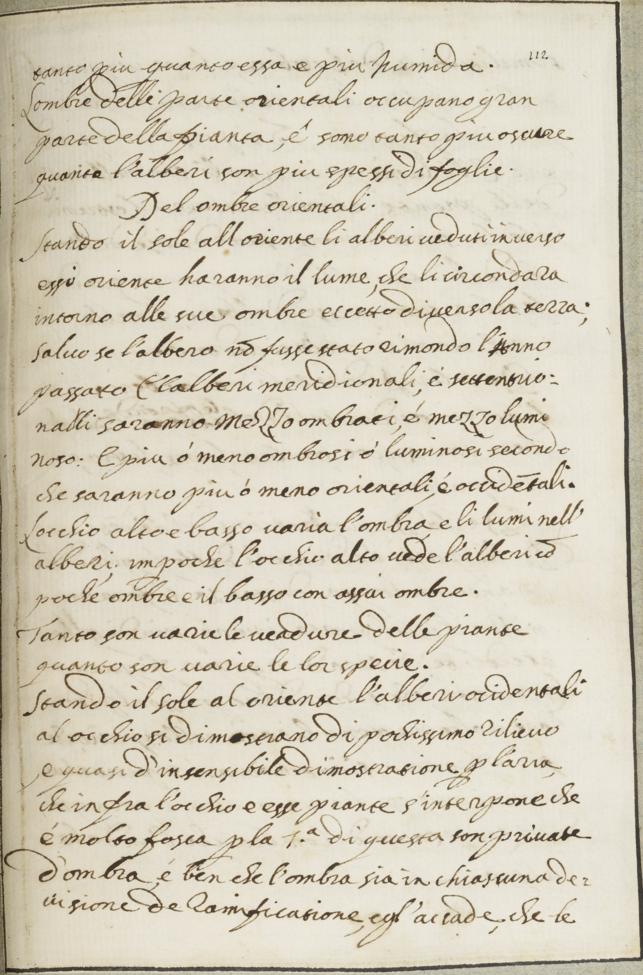 112
tanto piu quanto essa e piu humida.
Lombre delli parte orientali occupano gran
parte della pianta, é sono tanto piu oscure
quante l'alberi son piu spessi di foglie.
Del ombre orientali.
Stando il sole all oriente li alberi veduti inverso
essi oriente haranno il lume, che li circondara
intorno alle sue ombre eccetto di verso la terra;
salvo se l'albero nō fusse stato rimondo l'Anno
passato E l'alberi meridionali, é settentrio=
nalli saranno mezzo ombrati, é mezzo lumi
noso: E piu ó meno ombrosi ó luminosi secondo
che saranno piu ó meno orientali, é occidētali.
Locchio alto e basso varia l'ombra, e li lumi nell'
alberi, impoche l'occhio alto vede l'alberi cō
poche ombre e il basso con assai ombre.
Tanto son varie le verdure delle piante
quanto son varie le lor specie.
Stando il sole al oriente l'alberi ocidentali
al occhio si dimostrano di pochissimo rilievo
e quasi d'insensibile dimostratione p l'aria,
che infra l'occhio e esse piante s'interpone che
é molto fosca p la 7.ª di questa son private
d'ombra, é ben che l'ombra sia in chiascuna de=
visione de Ramificatione, egl'accade, che le